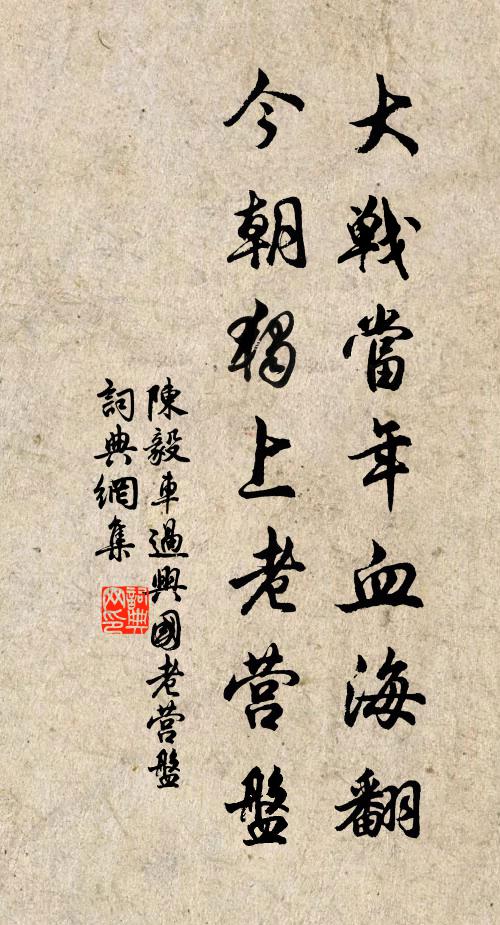 大戰當年血海翻
今朝獨上老营盤
陳毅車過興國老营盤
詞典網集
詞典
网印